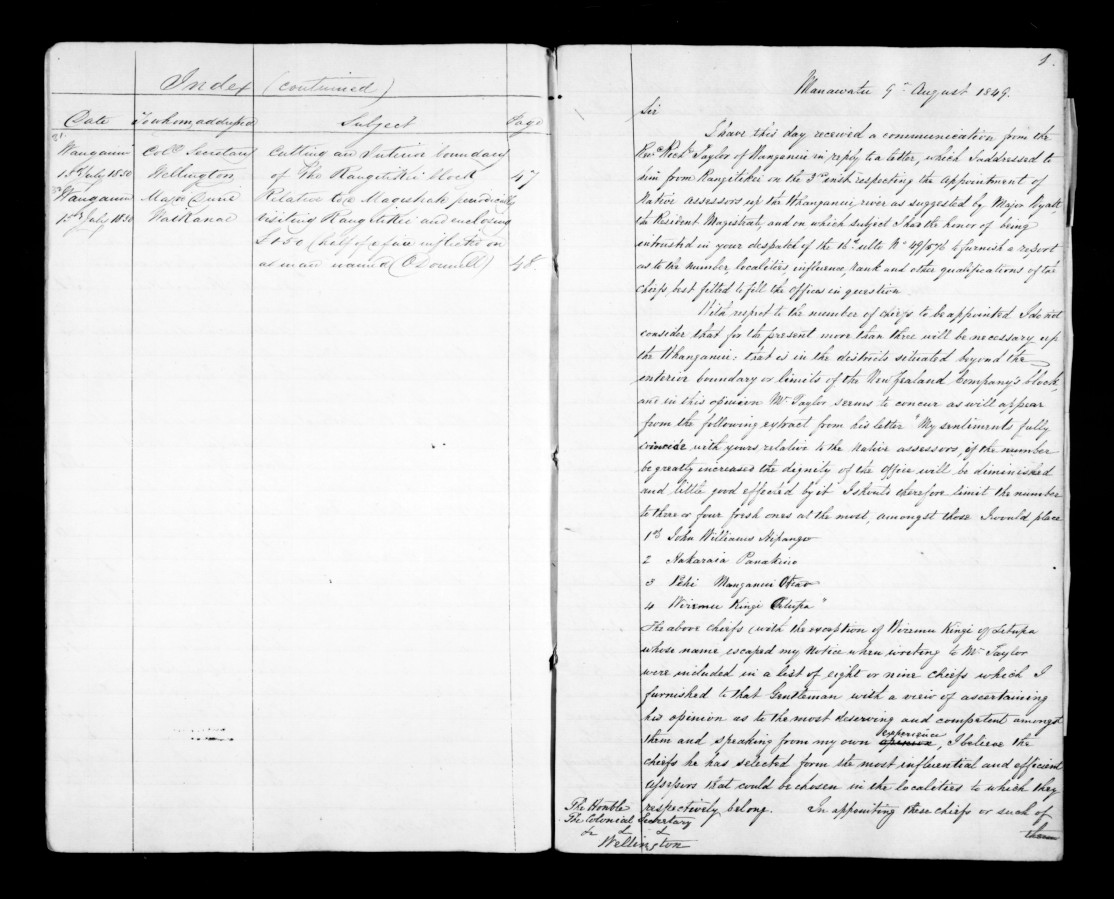 Index (continued)
Date To whom addressed Subject Page
Wanganui Col. Secretary Cutting an Interior boundary
15th July 1850 Wellington of the Rangitikei block 47
Wanganui Major Durie Relative to a Magistrate periodically
15th July 1850 Waikanae visiting Rangitikei and enclosing
£1.5.0 (half of a fine inflicted on
a man named O'Donnell) 48.
1.
Manawatu 9th August 1849.
Sir
I have this day received a communication from the
Revd Richd Taylor of Wanganui in reply to a letter, which I addressed to
him from Rangitikei on the 3rd inst respecting the appointment of
Native Assessors up the Whanganui river as suggested by Major Wyatt,
the Resident Magistrate, and on which subject I had the honor of being
instructed in your despatch of the 16th ulto No 49/576 to furnish a report
as to the number, localities, influence, rank and other qualifications of the
chiefs, best fitted to fill the Offices in question.
With respect to the number of chiefs to be appointed I do not
consider that for the present more than three will be necessary up
the Whanganui; that is in the districts situated beyond the
interior boundary or limits of the New Zealand Company's block,
and in this opinion Mr Taylor seems to concur as will appear
from the following extract from his letter "My sentiments fully
coincide with yours relative to the Native assessors, if the number
be greatly increased the dignity of the office will be diminished
and little good effected by it I should therefore limit the number
to three or four fresh ones at the most, amongst those I would place
1st John Williams Hipango
2 Hakaraia Panakino
3 Pehi Manganui
4 Wiremu Kingi "
The above chiefs (with the exception of Wiremu Kingi of
whose name escaped my notice when writing to Mr Taylor
were included in a list of eight or nine chiefs which I
furnished to that Gentleman with a view of ascertaining
his opinion as to the most deserving and competent amongst
them and speaking from my own experience opinion, I believe the
chiefs he has selected form the most influential and efficient
assessors that could be chosen in the localities to which they
respectively belong. In appointing these chiefs or such of
them
The Honble
The Colonial Secretary
& & &
Wellington